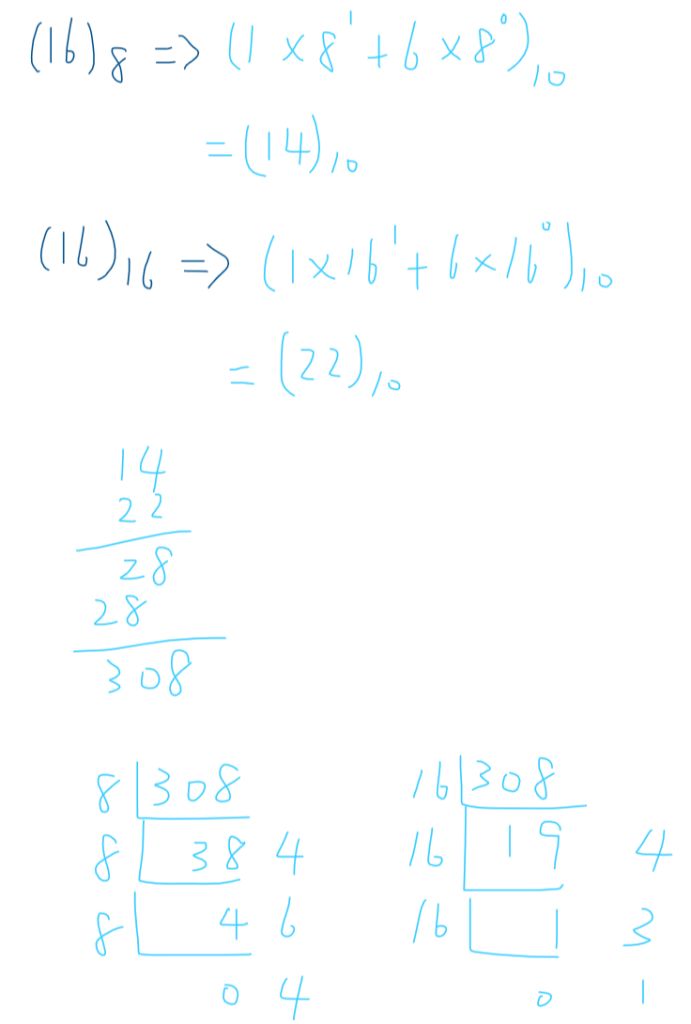 (16)₈ => (1 × 8¹ + 6 × 8⁰)₁₀
= (14)₁₀
(16)₁₆ => (1 × 16¹ + 6 × 16⁰)₁₀
= (22)₁₀
14
22
28
28
308
8 308
8 38 4
8 4 6
0 4
16 308
16 19 4
16 1 3
0 1